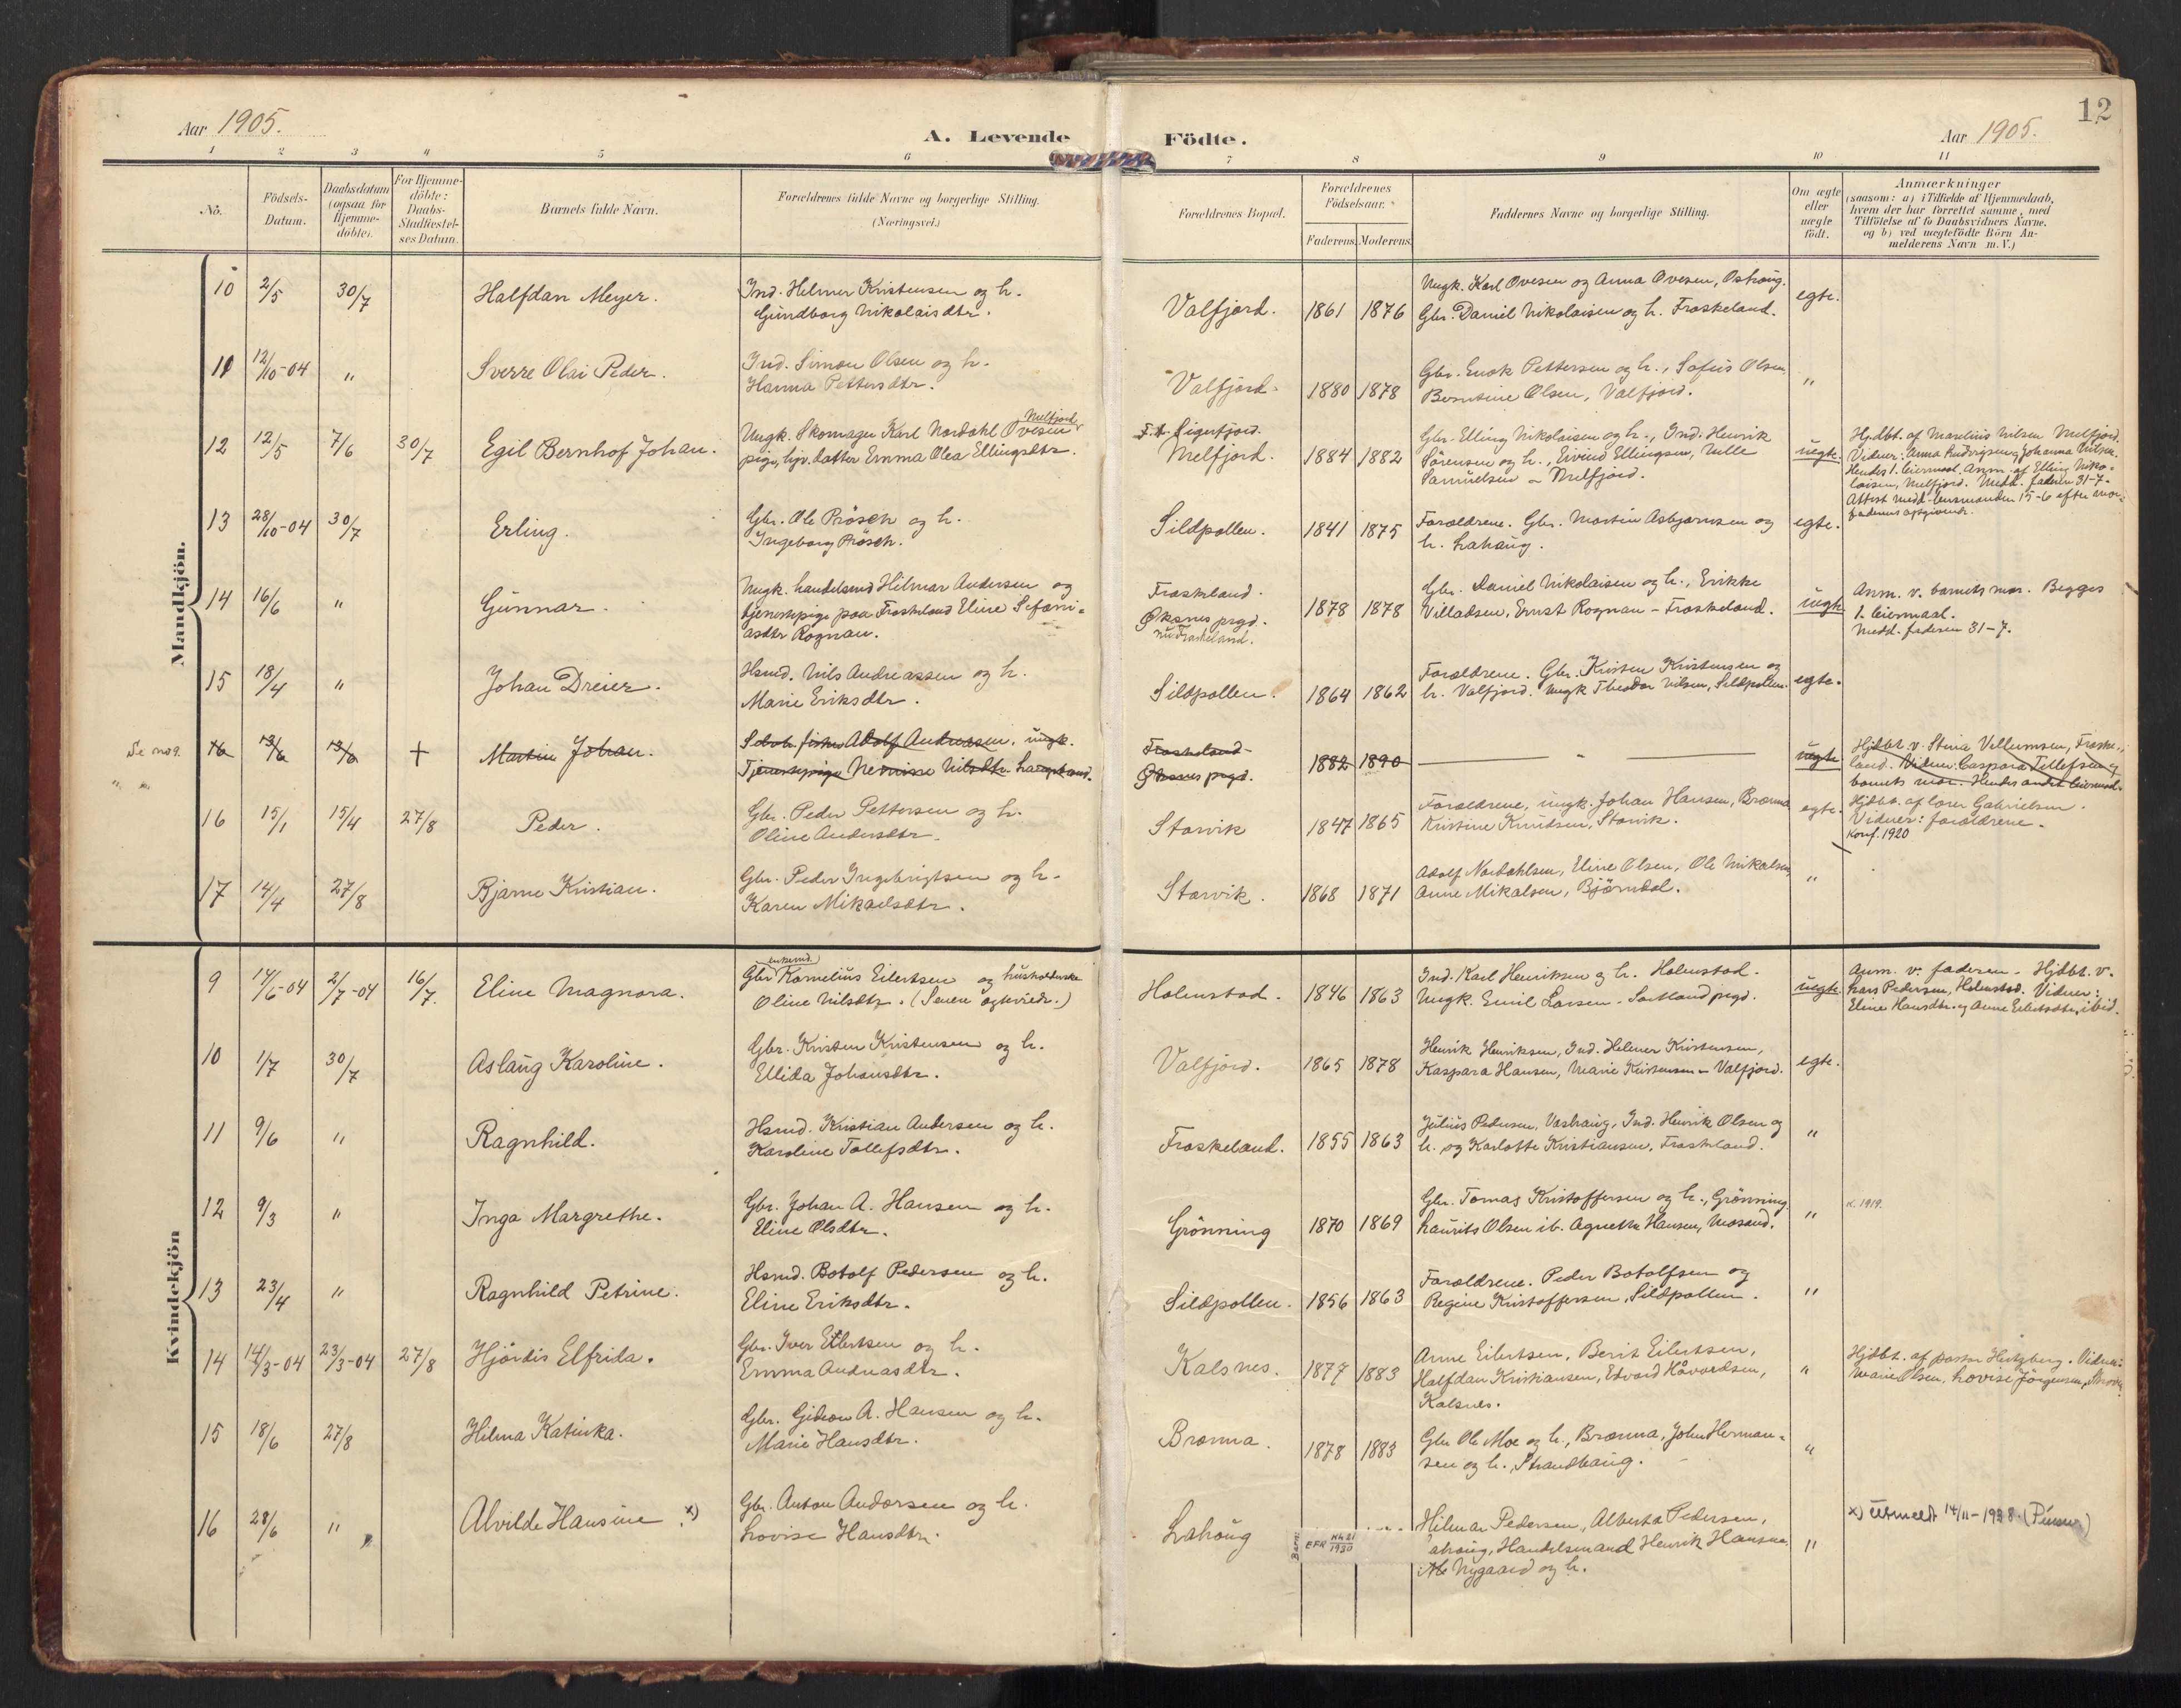 Aar 1905.
A. Levende Födte.
Aar 1905.
12
1 2 3 4 5 6 7 8 9 10 11
No.
Födsels-
Datum.
Daabsdatum
(ogsaa for
Hjemme-
döbte).
For Hjemme-
döbte:
Daabs-
Stadfæstel-
ses Datum.
Barnets fulde Navn.
Forældrenes fulde Navne og borgerlige Stilling.
(Næringsvei.)
Forældrenes Bopæl.
Forældrenes
Födselsaar.
Faderens. Moderens.
Faddernes Navne og borgerlige Stilling.
Om ægte
eller
uægte
födt.
Anmærkninger
(saasom: a) i Tilfælde af Hjemmedaab,
hvem der har forrettet samme, med
Tilföielse af to Daabsvidners Navne,
og b) ved uægtefödte Börn An-
melderens Navn m. V.)
Mandkjön.
10 2/5 30/7 Halfdan Meyer.
Ind. Helmer Kristensen og h.
Gundborg Nikolaisdtr.
Valfjord. 1861 1876
Ungk. Karl Ovesen og Anna Ovesen, Osthaug.
Gbr. Daniel Nikolaisen og h. Froskeland.
egte.
11 12/10-04 " Sverre Olai Peder.
Ind. Simon Olsen og h.
Hanna Pettersdtr.
Valfjord. 1880 1878
Gbr. Enok Pettersen og h., Sofus Olsen,
Berntine Olsen, Valfjord.
"
12 12/5 7/6 30/7 Egil Bernhof Johan.
Ungk. Skomager Karl Nordahl Ovesen Melfjord
pige, hjv. datter Emma Olea Ellingsdtr.
F. t. Sigerfjord.
Melfjord. 1884 1882
Gbr. Elling Nikolaisen og h., Ind. Henrik
Sörensen og h., Eivind Ellingsen, Nille
Samuelsen - Melfjord.
uegte.
Hj.dbt. af Marelius Nilsen Melfjord.
Vidner: Anna Ludvigsen og Johanna Nilsen.
Hendes 1. leiermaal. Anm. af Elling Niko-
laisen, Melfjord. Medd. faderen 31-7.
Attest medd. lensmanden 15-6 efter mor-
faderens opgivende.
13 28/10-04 30/7 Erling.
Gbr. Ole Prösch og h.
Ingeborg Prösch.
Sildpollen. 1841 1875
Forældrene. Gbr. Martin Asbjørnsen og
h. Lahaug.
egte.
14 16/6 " Gunnar.
Ungk. handelsmd Hilmar Andersen og
tjenestepige paa Froskeland Eline Sefani-
asdtr Rognan.
Froskeland.
Øksnes prgd.
nu Froskeland.
1878 1878
Gbr. Daniel Nikolaisen og h., Erikke
Villadsen, Ernst Rognan - Froskeland.
uegte
Anm. v. barnets mor. Begges
1. leiermaal.
Medd. faderen 31-7.
15 18/4 " Johan Dreier.
Hsmd. Nils Andreassen og h.
Marie Eriksdtr.
Sildpollen. 1864 1862
Forældrene. Gbr. Kristen Kristensen og
h. Valfjord. Ungk Theodor Nilsen, Sildpollen.
egte.
Se no 9.
16 13/6 13/6 + Martin Johan.
Selvst. fisker Adolf Andreasen, ungk.
Tjenestepige Hernine Nilsdtr
Froskeland
Øksnes prgd.
1882 1890
uegte
Hjdbt. v. Stina Vellumsen, Froske-
land. Vidner: Caspara Tellefsen og
barnets mor. Hendes andet leiermaal.
" "
16 15/1 15/4 27/8 Peder.
Gbr. Peder Pettersen og h.
Oline Andersdtr.
Storvik 1847 1865
Forældrene, ungk. Johan Hansen, Brænna
Kristine Knudsen, Storvik.
egte.
Hjdbt. af lærer Gabrielsen.
Vidner: forældrene.
Konf. 1920
17 14/4 27/8 Bjarne Kristian.
Gbr. Peder Ingebrigtsen og h.
Karen Mikaelsdtr.
Storvik. 1868 1871
Adolf Nordahlsen, Eline Olsen, Ole Mikalsen,
Anne Mikalsen, Björndal.
"
Kvindekjön
9 14/6-04 2/7-04 16/7. Eline Magnora.
enkemd.
Gbr Kornelius Eilertsen og husholderske
Oline Nilsdtr. (Senere egteviede.)
Holmstad. 1846 1863
Ind. Karl Henriksen og h. Holmstad.
Ungk. Emil Larsen. Sortland prgd.
uegte
Anm. v. faderen. Hjdbt. v.
Lars Pedersen, Holmstad. Vidner:
Eline Hansdtr. og Anne Eilertsdtr, ibid.
10 1/7 30/7 Aslaug Karoline.
Gbr. Kristen Kristensen og h.
Ellida Johansdtr.
Valfjord. 1865 1878
Henrik Henriksen, Ind. Helmer Kristensen,
Kaspara Hansen, Marie Kristensen - Valfjord.
egte.
11 9/6 " Ragnhild.
Hsmd. Kristian Andersen og h.
Karoline Tollefsdtr.
Froskeland. 1855 1863
Julius Pedersen, Vashaug, Ind. Henrik Olsen og
h. og Karlotte Kristiansen, Froskeland.
"
12 9/3 " Inga Margrethe.
Gbr. Johan A. Hansen og h.
Eline Olsdtr.
Grönning 1870 1869
Gbr. Tomas Kristoffersen og h., Grönning
Laurits Olsen ib. Agnethe Hansen, Mosand.
"
K. 1919.
13 23/4 " Ragnhild Petrine.
Hsmd. Botolf Pedersen og h.
Eline Eriksdtr.
Sildpollen. 1856 1863
Forældrene. Peder Botolfsen og
Regine Kristoffersen, Sildpollen.
"
14 14/3-04 23/3-04 27/8 Hjördis Elfrida.
Gbr. Iver Eilertsen og h.
Emma Andreasdtr.
Kalsnes. 1877 1883
Anne Eilertsen, Berit Eilertsen,
Halfdan Kristiansen, Edvard Håvardsen,
Kalsnes.
"
Hjdbt. af pastor Hertzberg. Vidner:
Marie Olsen, Lovise Jörgensen,
15 18/6 27/8 Helma Katinka.
Gbr. Gideon A. Hansen og h.
Marie Hansdtr.
Brænna. 1878 1883
Gbr Ole Moe og h., Brænna, John Herman-
sen og h., Strandhaug.
"
16 28/6 " Alvilde Hansine x)
Gbr. Anton Andersen og h.
Lovise Hansdtr.
Lahaug
EFR 1930
Hilmar Pedersen, Alberta Pedersen,
ahaug, Handelsmand Henrik Hansen
Ole Nygaard og h.
"
x) utmeldt 14/11-1938.